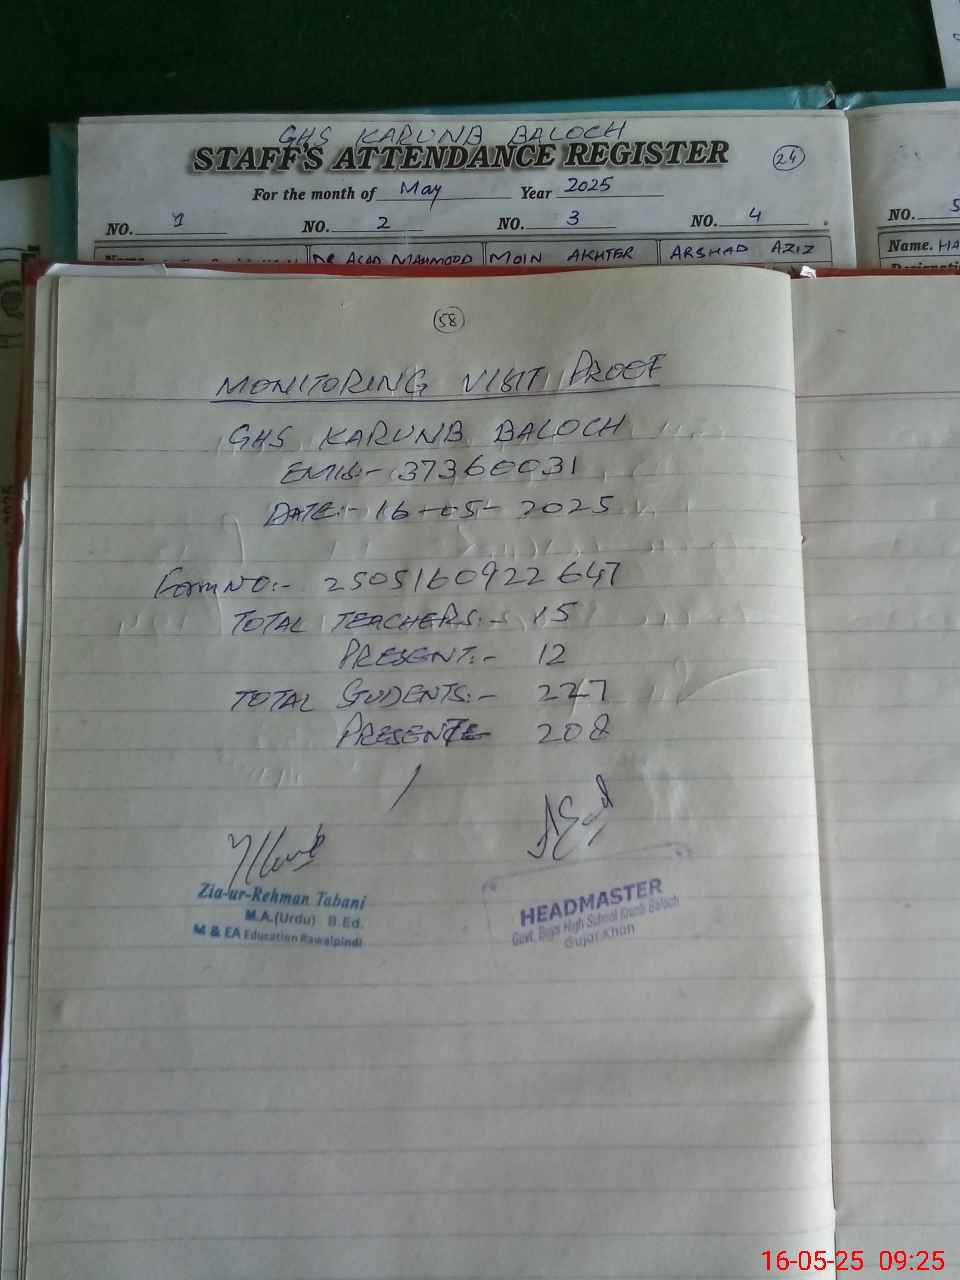 GHS KARUNB BALOCH
STAFF'S ATTENDANCE REGISTER
24
For the month of May Year 2025
NO. 1 NO. 2 NO. 3 NO. 4
NO. 5
DR ASAD MAHMOOD MOIN AKHTER ARSHAD AZIZ
Name. HA
58
MONITORING VISIT PROOF
GHS KARUNB BALOCH
EMIS:- 37360031
DATE:- 16-05-2025
Form NO:- 2505160922647
TOTAL TEACHERS:- 15
PRESENT:- 12
TOTAL STUDENTS:- 227
PRESENT:- 208
Zia-ur-Rehman Tabani
M.A.(Urdu) B.Ed.
M & EA Education Rawalpindi
HEADMASTER
Govt. Boys High School Karunb Baloch
Gujar Khan
16-05-25 09:25